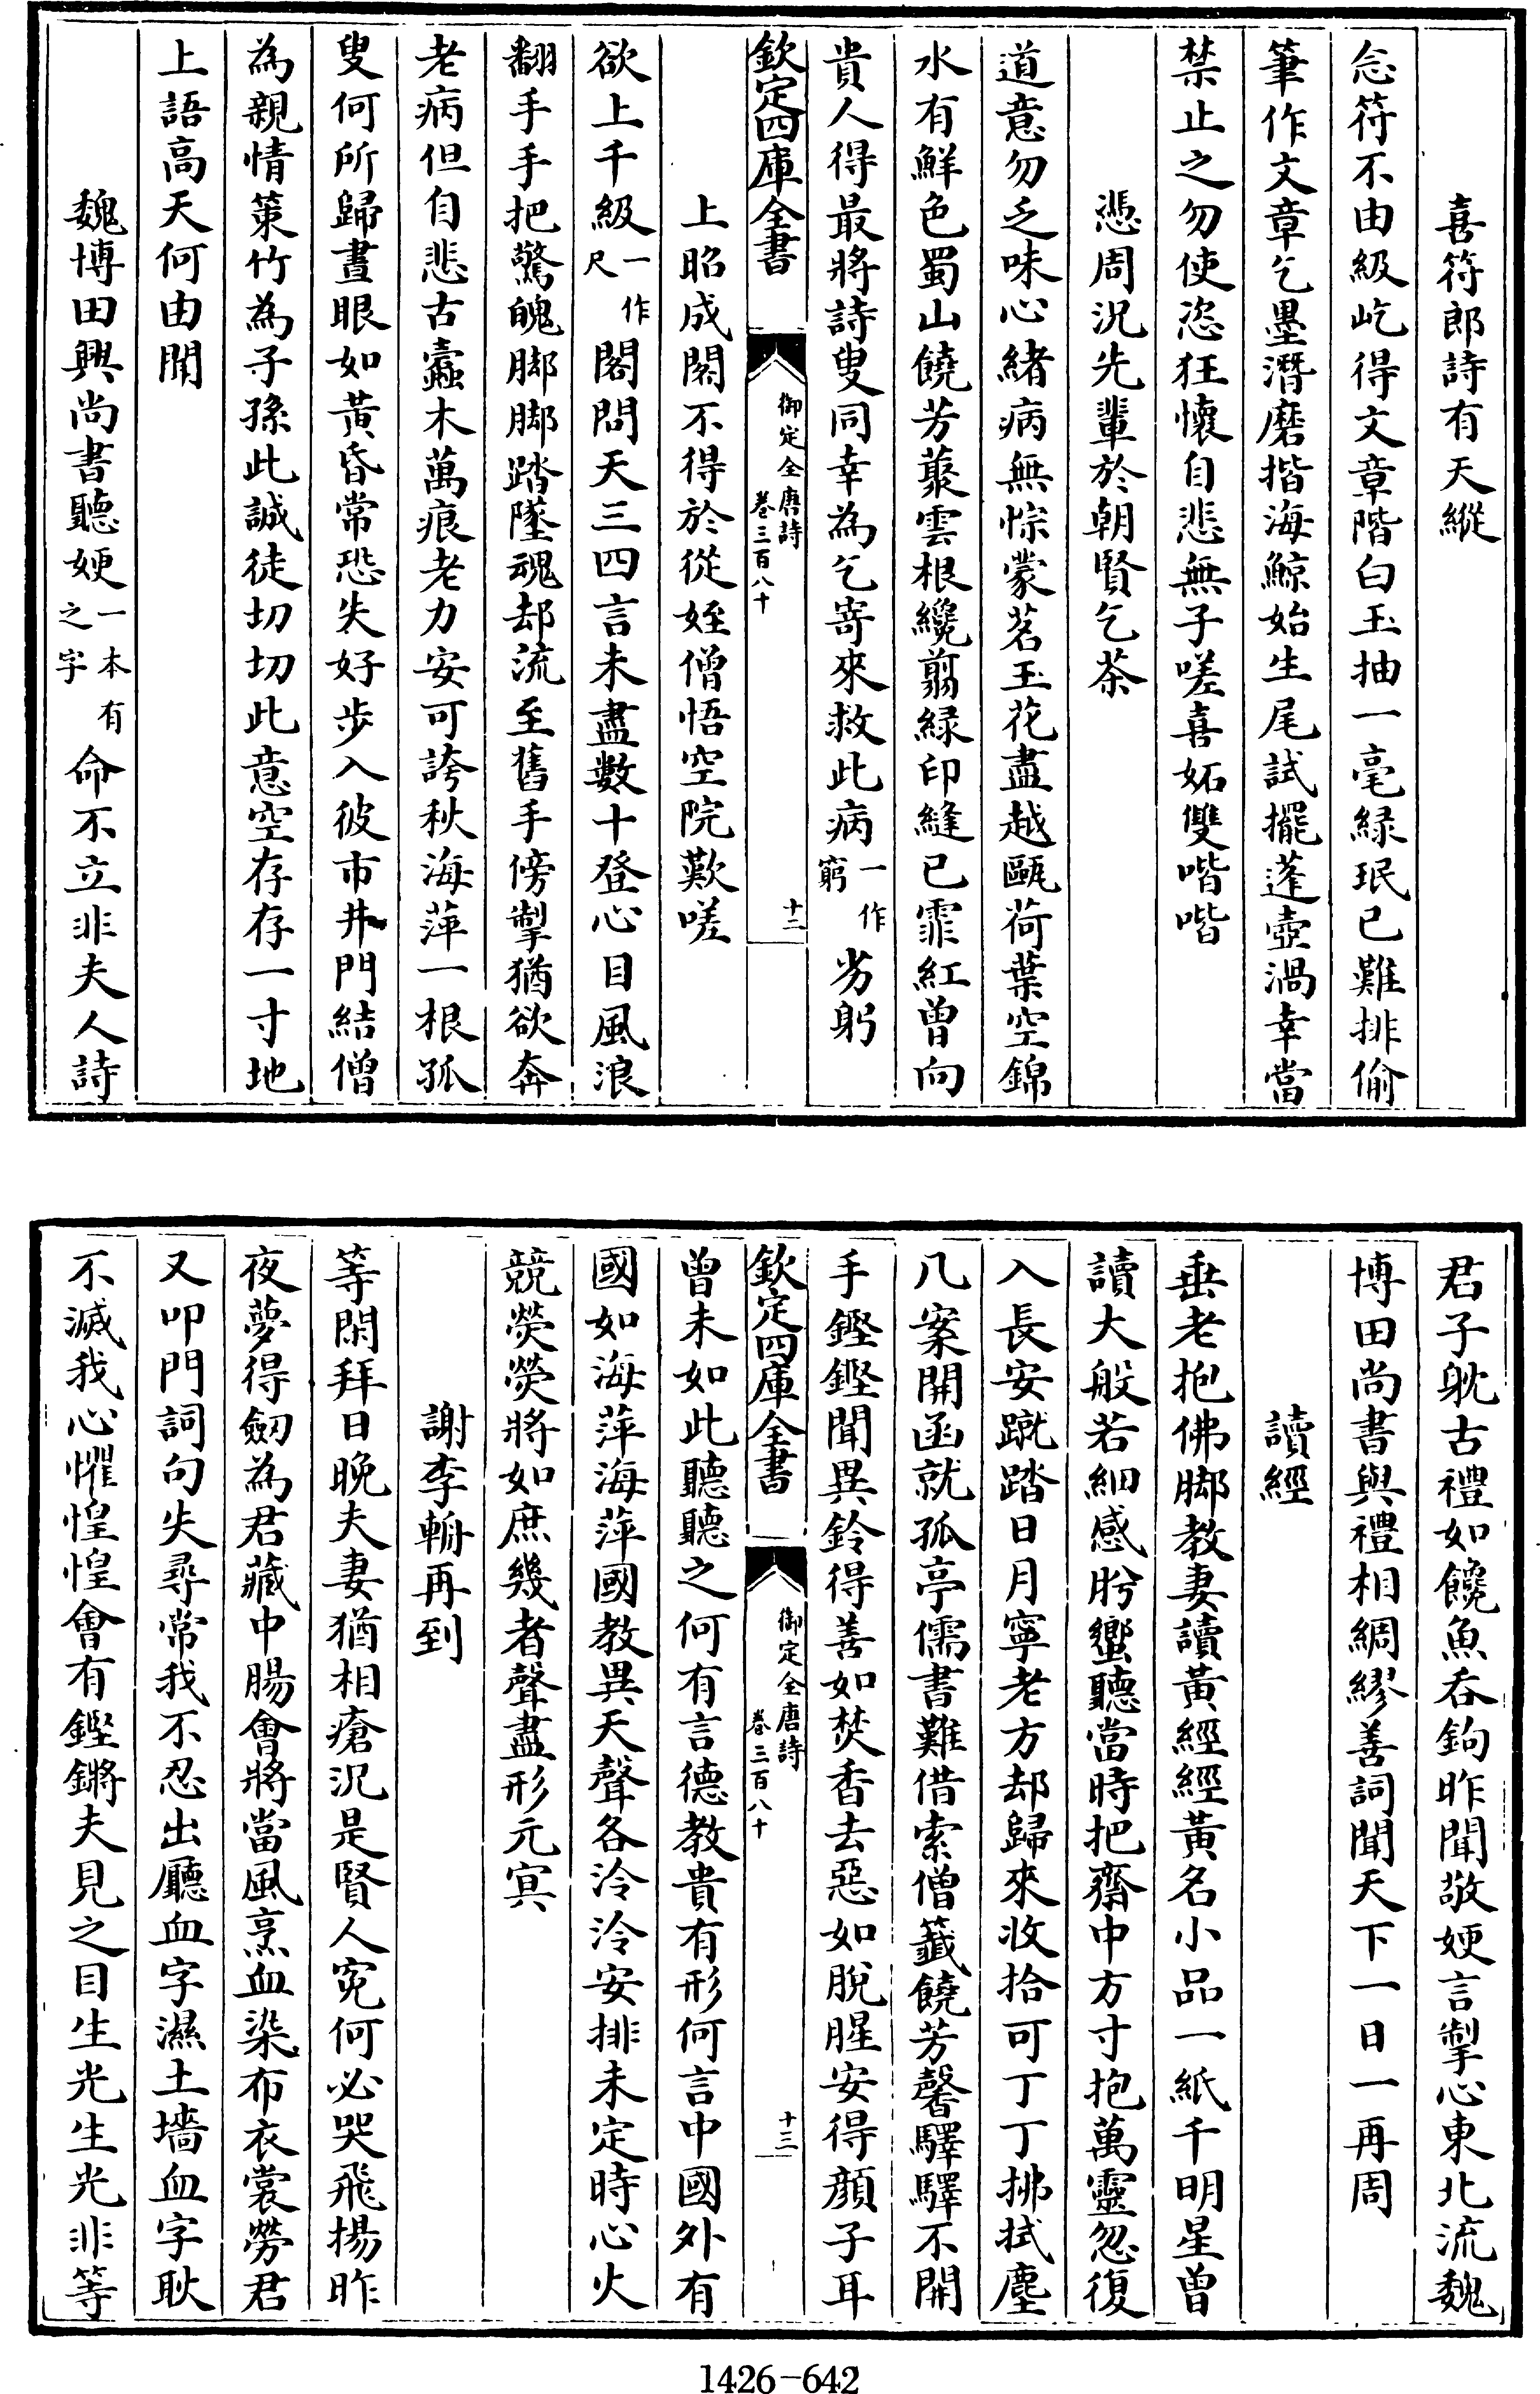 喜符郎詩有天縱
念符不由級屹得文章階白玉抽一毫緑珉已難排偷
筆作文章乞墨潛磨揩海鯨始生尾試擺蓬壺渦幸當
禁止之勿使恣狂懷自悲無子嗟喜妬雙喈喈
憑周況先輩於朝賢乞茶
道意勿乏味心緒病無悰蒙茗玉花盡越甌荷葉空錦
水有鮮色蜀山饒芳藂雲根纔翦緑印縫已霏紅曽向
貴人得最將詩叟同幸為乞寄來救此病一作窮劣躬
欽定四庫全書
御定全唐詩
卷三百八十
十二
上昭成閣不得於從姪僧悟空院歎嗟
欲上千級一作尺閣問天三四言未盡數十登心目風浪
翻手手把驚魄脚脚踏墜魂却流至舊手傍掣猶欲奔
老病但自悲古蠧木萬痕老力安可誇秋海萍一根孤
叟何所歸晝眼如黃昏常恐失好步入彼市井門結僧
為親情策竹為子孫此誠徒切切此意空存存一寸地
上語高天何由聞
魏博田興尚書聽嫂一本有之字命不立非夫人詩
君子躭古禮如饞魚吞鉤昨聞敬嫂言掣心東北流魏
博田尚書與禮相綢繆善詞聞天下一日一再周
讀經
垂老抱佛脚教妻讀黃經經黃名小品一紙千明星曽
讀大般若細感肹蠁聽當時把齋中方寸抱萬靈忽復
入長安蹴踏日月寧老方却歸來收拾可丁丁拂拭塵
几案開函就孤亭儒書難借索僧籤饒芳馨驛驛不開
手鏗鏗聞異鈴得善如焚香去惡如脫腥安得顔子耳
欽定四庫全書
御定全唐詩
卷三百八十
十三
曽未如此聽聽之何有言德教貴有形何言中國外有
國如海萍海萍國教異天聲各泠泠安排未定時心火
競熒熒將如庶幾者聲盡形元冥
謝李輈再到
等閑拜日晚夫妻猶相瘡況是賢人寃何必哭飛揚昨
夜夢得劒為君藏中腸會將當風烹血染布衣裳勞君
又叩門詞句失尋常我不忍出廳血字濕土墻血字耿
不滅我心懼惶惶會有鏗鏘夫見之目生光生光非等
1426-642